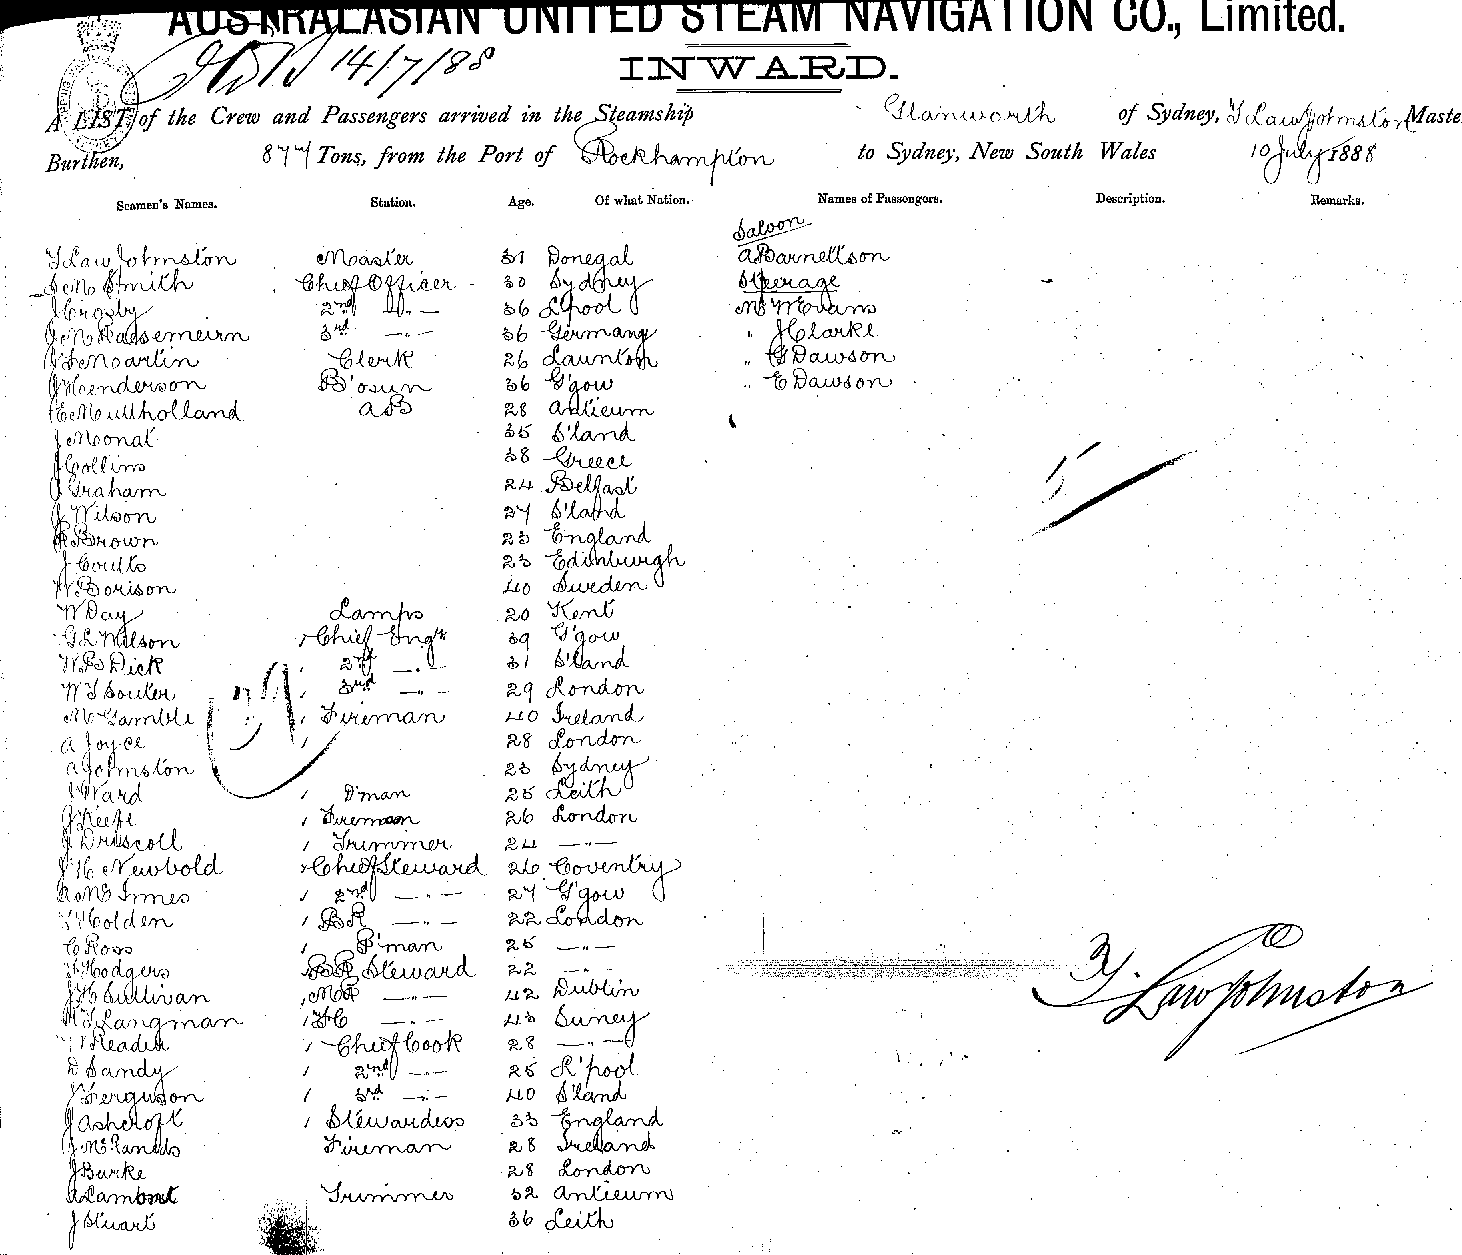 AUSTRALASIAN UNITED STEAM NAVIGATION CO., Limited.
14/7/88
INWARD.
A LIST of the Crew and Passengers arrived in the Steamship Glanworth of Sydney, T Law Johnston Maste
Burthen, 877 Tons, from the Port of Rockhampton to Sydney, New South Wales 10 July 1888
Seamen's Names. Station. Age. Of what Nation. Names of Passengers. Description. Remarks.
Saloon
T Law Johnston Master 31 Donegal A Barnettson
Smith Chief Officer 30 Sydney Steerage
J Crosby 2nd Do. — 36 L'pool Mr M Evans
J 3rd —"— 36 Germany " J Clarke
Martin Clerk 26 Launton " G Dawson
J Henderson B'osun 36 G'gow " E Dawson
E Mullholland AB 28 Antieum
J Monat 35 S'land
J Collins 38 Greece
J Graham 24 Belfast
J Wilson 27 S'land
R Brown 23 England
J Coutts 23 Edinburgh
W Borison 40 Sweden
W Day Lamps 20 Kent
G L Wilson Chief Engr 39 G'gow
W B Dick 2nd —"— 31 S'land
W T Souter 3rd —"— 29 London
M Gamble Fireman 40 Ireland
A Joyce 28 London
A Johnston 23 Sydney
J Ward D'man 25 Leith
J Keefe Fireman 26 London
J Driscoll Trimmer 24 —"—
J H Newbold Chief Steward 26 Coventry
A McInnes 2nd —"— 27 G'gow
T Holden BR —"— 22 London
C Ross P'man 25 —"—
H Hodgers BR Steward 22 —"—
J H Sullivan MR —"— 42 Dublin
Langman FC —"— 43 Surrey
Reader Chief Cook 28 —"—
D Sandy 2nd —"— 25 L'pool
J Ferguson 3rd —"— 40 S'land
J Ashcroft Stewardess 33 England
J Fireman 28 Ireland
J Burke 28 London
A Lambert Trimmer 32 Antieum
J Stuart 36 Leith
5
39
T. Law Johnston